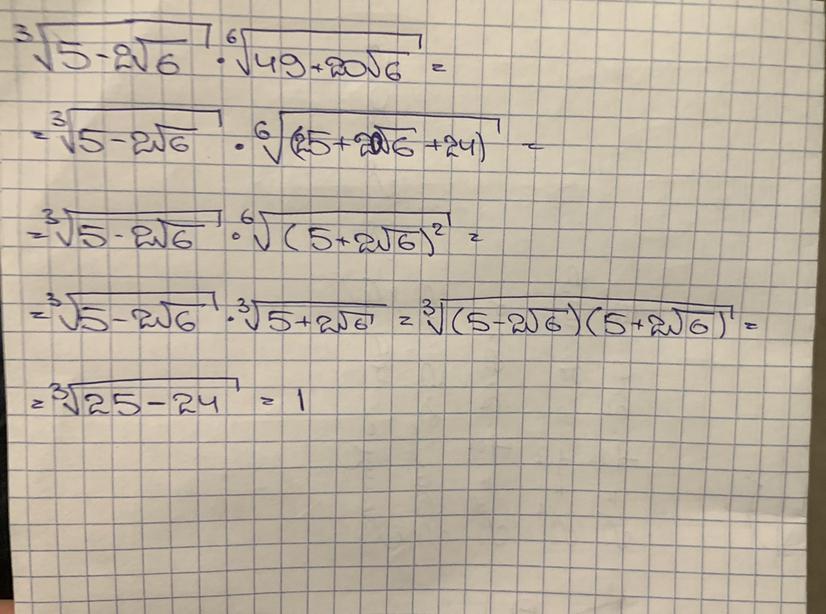 ∛(5-2√6) · ⁶√(49+20√6) =
= ∛(5-2√6) · ⁶√(25+20√6+24) =
= ∛(5-2√6) · ⁶√((5+2√6)²) =
= ∛(5-2√6) · ∛(5+2√6) = ∛((5-2√6)(5+2√6)) =
= ∛(25-24) = 1